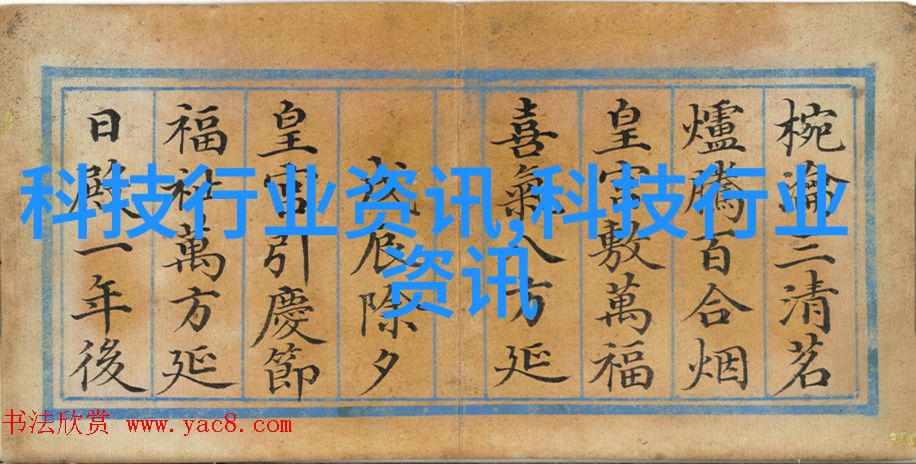 椀瀹三清茗
爐騰百合烟
皇宫敷萬福
喜氣八方延
戊辰除夕
皇宫引慶節
福祉萬方延
日殿一年後
科技行业资讯,科技行业
资讯
书法欣赏 www.yac8.com